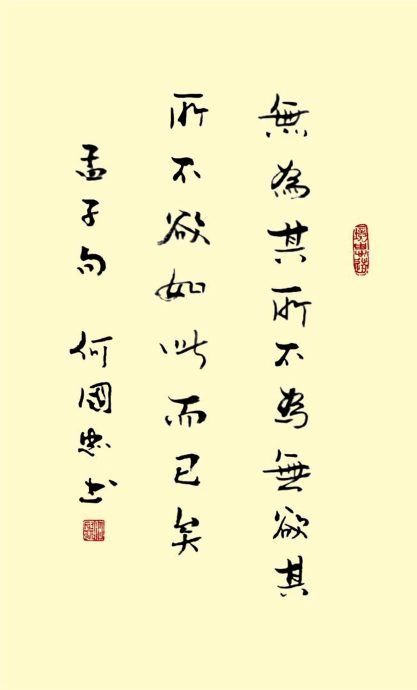 無為其所不為無欲其
所不欲如此而已矣
孟子句 何國忠書